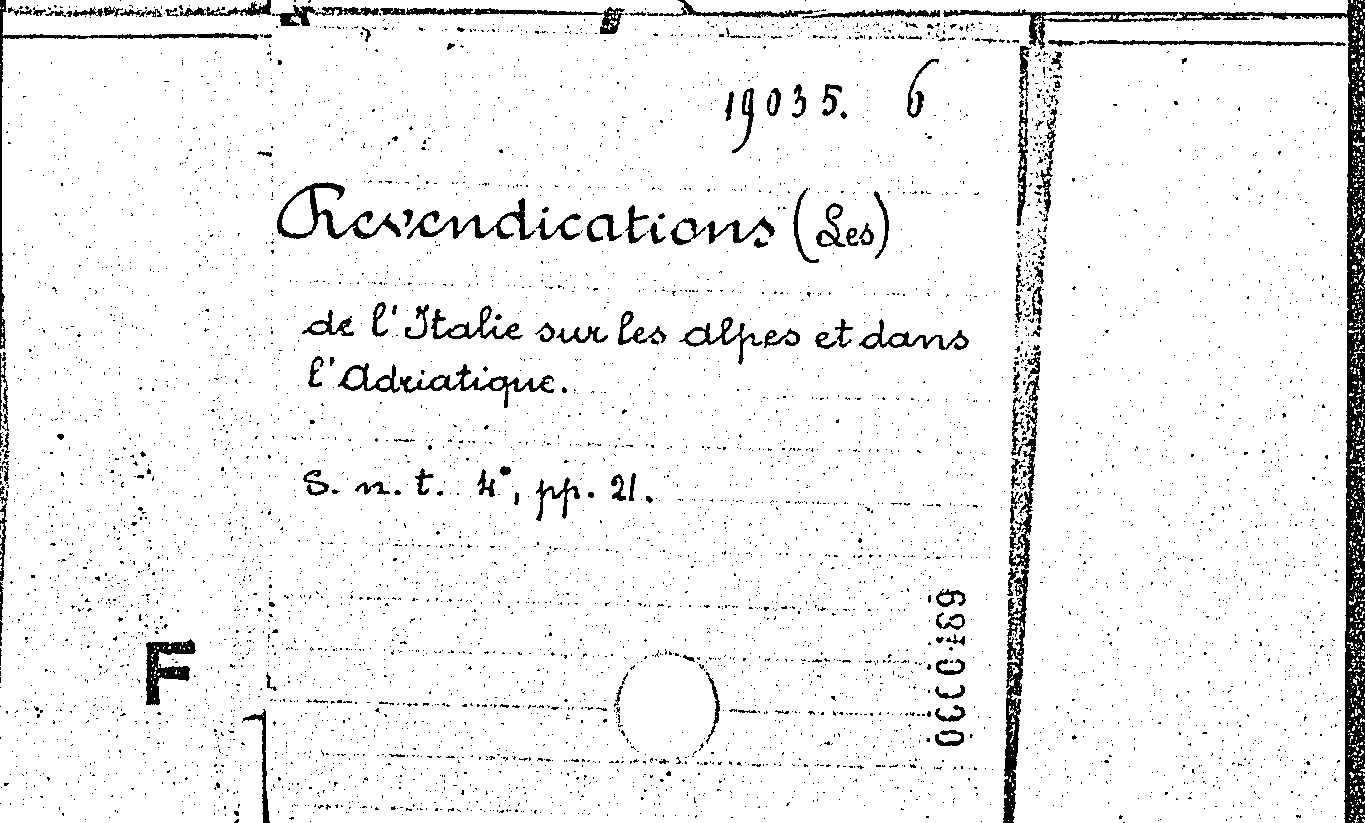 19035. 6
Revendications (Les)
de l'Italie sur les alpes et dans
l'Adriatique.
S. n. t. 4°, pp. 21.
F